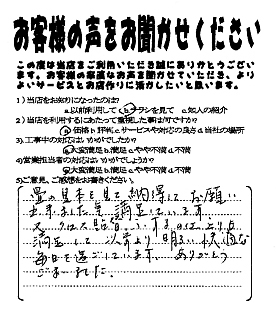 お客様の声をお聞かせください
この度は当店をご利用いただき誠にありがとうござい
ます。お客様の率直なお声を聞かせていただき、より
よいサービスとお店作りに活かしたいと思います。
1)当店をお知りになったのは?
a.以前利用して b.チラシを見て c.知人の紹介
2)当店を利用するにあたって重視した事は何ですか?
a.価格 b.評判 c.サービスや対応の良さ d.当社の場所
3)工事中の対応はいかがでしたか?
a.大変満足 b.満足 c.やや不満 d.不満
4)営業担当者の対応はいかがでしょうか?
a.大変満足 b.満足 c.やや不満 d.不満
5)ご意見、ご感想をお書きください。
畳の見本を見て納得してお願い
出来ました事 満足しています
満足して 以前より明るい 快適な
毎日を過ごしています。ありがとう
ございました。